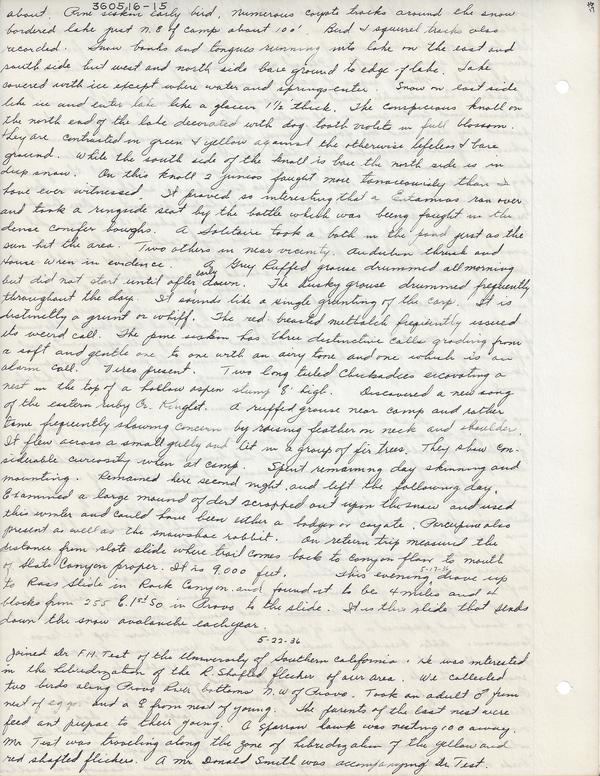 3605,16-15
about. Pine siskin early bird. Numerous coyote tracks around the snow
bordered lake just N.E of camp about 100'. Bird & squirrel tracks also
recorded. Snow banks and tongues running into lake on the east and
south side but west and north side bare ground to edge of lake. Lake
covered with ice except where water and springs enter. Snow on east side
like ice and enter lake like a glacier 1½ thick. The conspicious knoll on
the north end of the lake decorated with dog tooth violets in full blossom.
They are contrasted in green & yellow against the otherwise lifeless & bare
ground. While the south side of the knoll is bare the north side is in
deep snow. On this knoll 2 juncos fought more tenaceously than I
have ever witnessed. It proved so interesting that a Eutamias ran over
and took a ringside seat by the battle which was being fought in the
dense conifer boughs. A Solitaire took a bath in the pond just as the
sun hit the area. Two others in near vicinity. Audubon thrush and
House wren in evidence. A Grey Ruffed grouse drummed all morning
but did not start until after early dawn. The Dusky grouse drummed frequently
throughout the day. It sounds like a single grunting of the carp. It is
distinctly a grunt or whiff. The red breasted nuthatch frequently issued
its weird call. The pine siskin has three distinctive calls grading from
a soft and gentle one to one with an airy tone and one which is an
alarm call. Vireo present. Two long tailed Chickadies excavating a
nest in the top of a hollow aspen stump 8' high. Discovered a new song
of the eastern ruby Cr. Kinglet. A ruffed grouse near camp and rather
tame frequently showing concern by raising feather on neck and shoulder.
It flew across a small gully and lit in a group of fir trees. They show con-
siderable curiosity when at camp. Spent remaining day skinning and
mounting. Remained here second night and left the following day.
Examined a large mound of dirt scrapped out upon the snow and used
this winter and could have been either a badger or coyote. Porcupine also
present as well as the snowshoe rabbit. On return trip measured the
distance from slate slide where trail comes back to canyon floor to mouth
of Slate Canyon proper. It is 9,000 feet. This evening 5-17-36 drove up
to Ross Slide in Rock Canyon and found it to be 4 miles and 4
blocks from 255 E. 1st So. in Provo to the slide. It is this slide that sends
down the snow avalanche each year.
5-22-36
Joined Dr. F.H. Test of the University of Southern California. He was interested
in the hibredization of the R. Shafted flicker of our area. We collected
two birds along Provo River bottoms N.W of Provo. Took an adult ♂ from
nest of eggs and a ♂ from nest of young. The parents of the last nest were
feed ant pupae to their young. A Sparrow hawk was nesting 100 away.
Mr Test was traveling along the zone of hibredization of the yellow and
red shafted flickers. A Mr Donald Smith was accompanying Dr. Test.